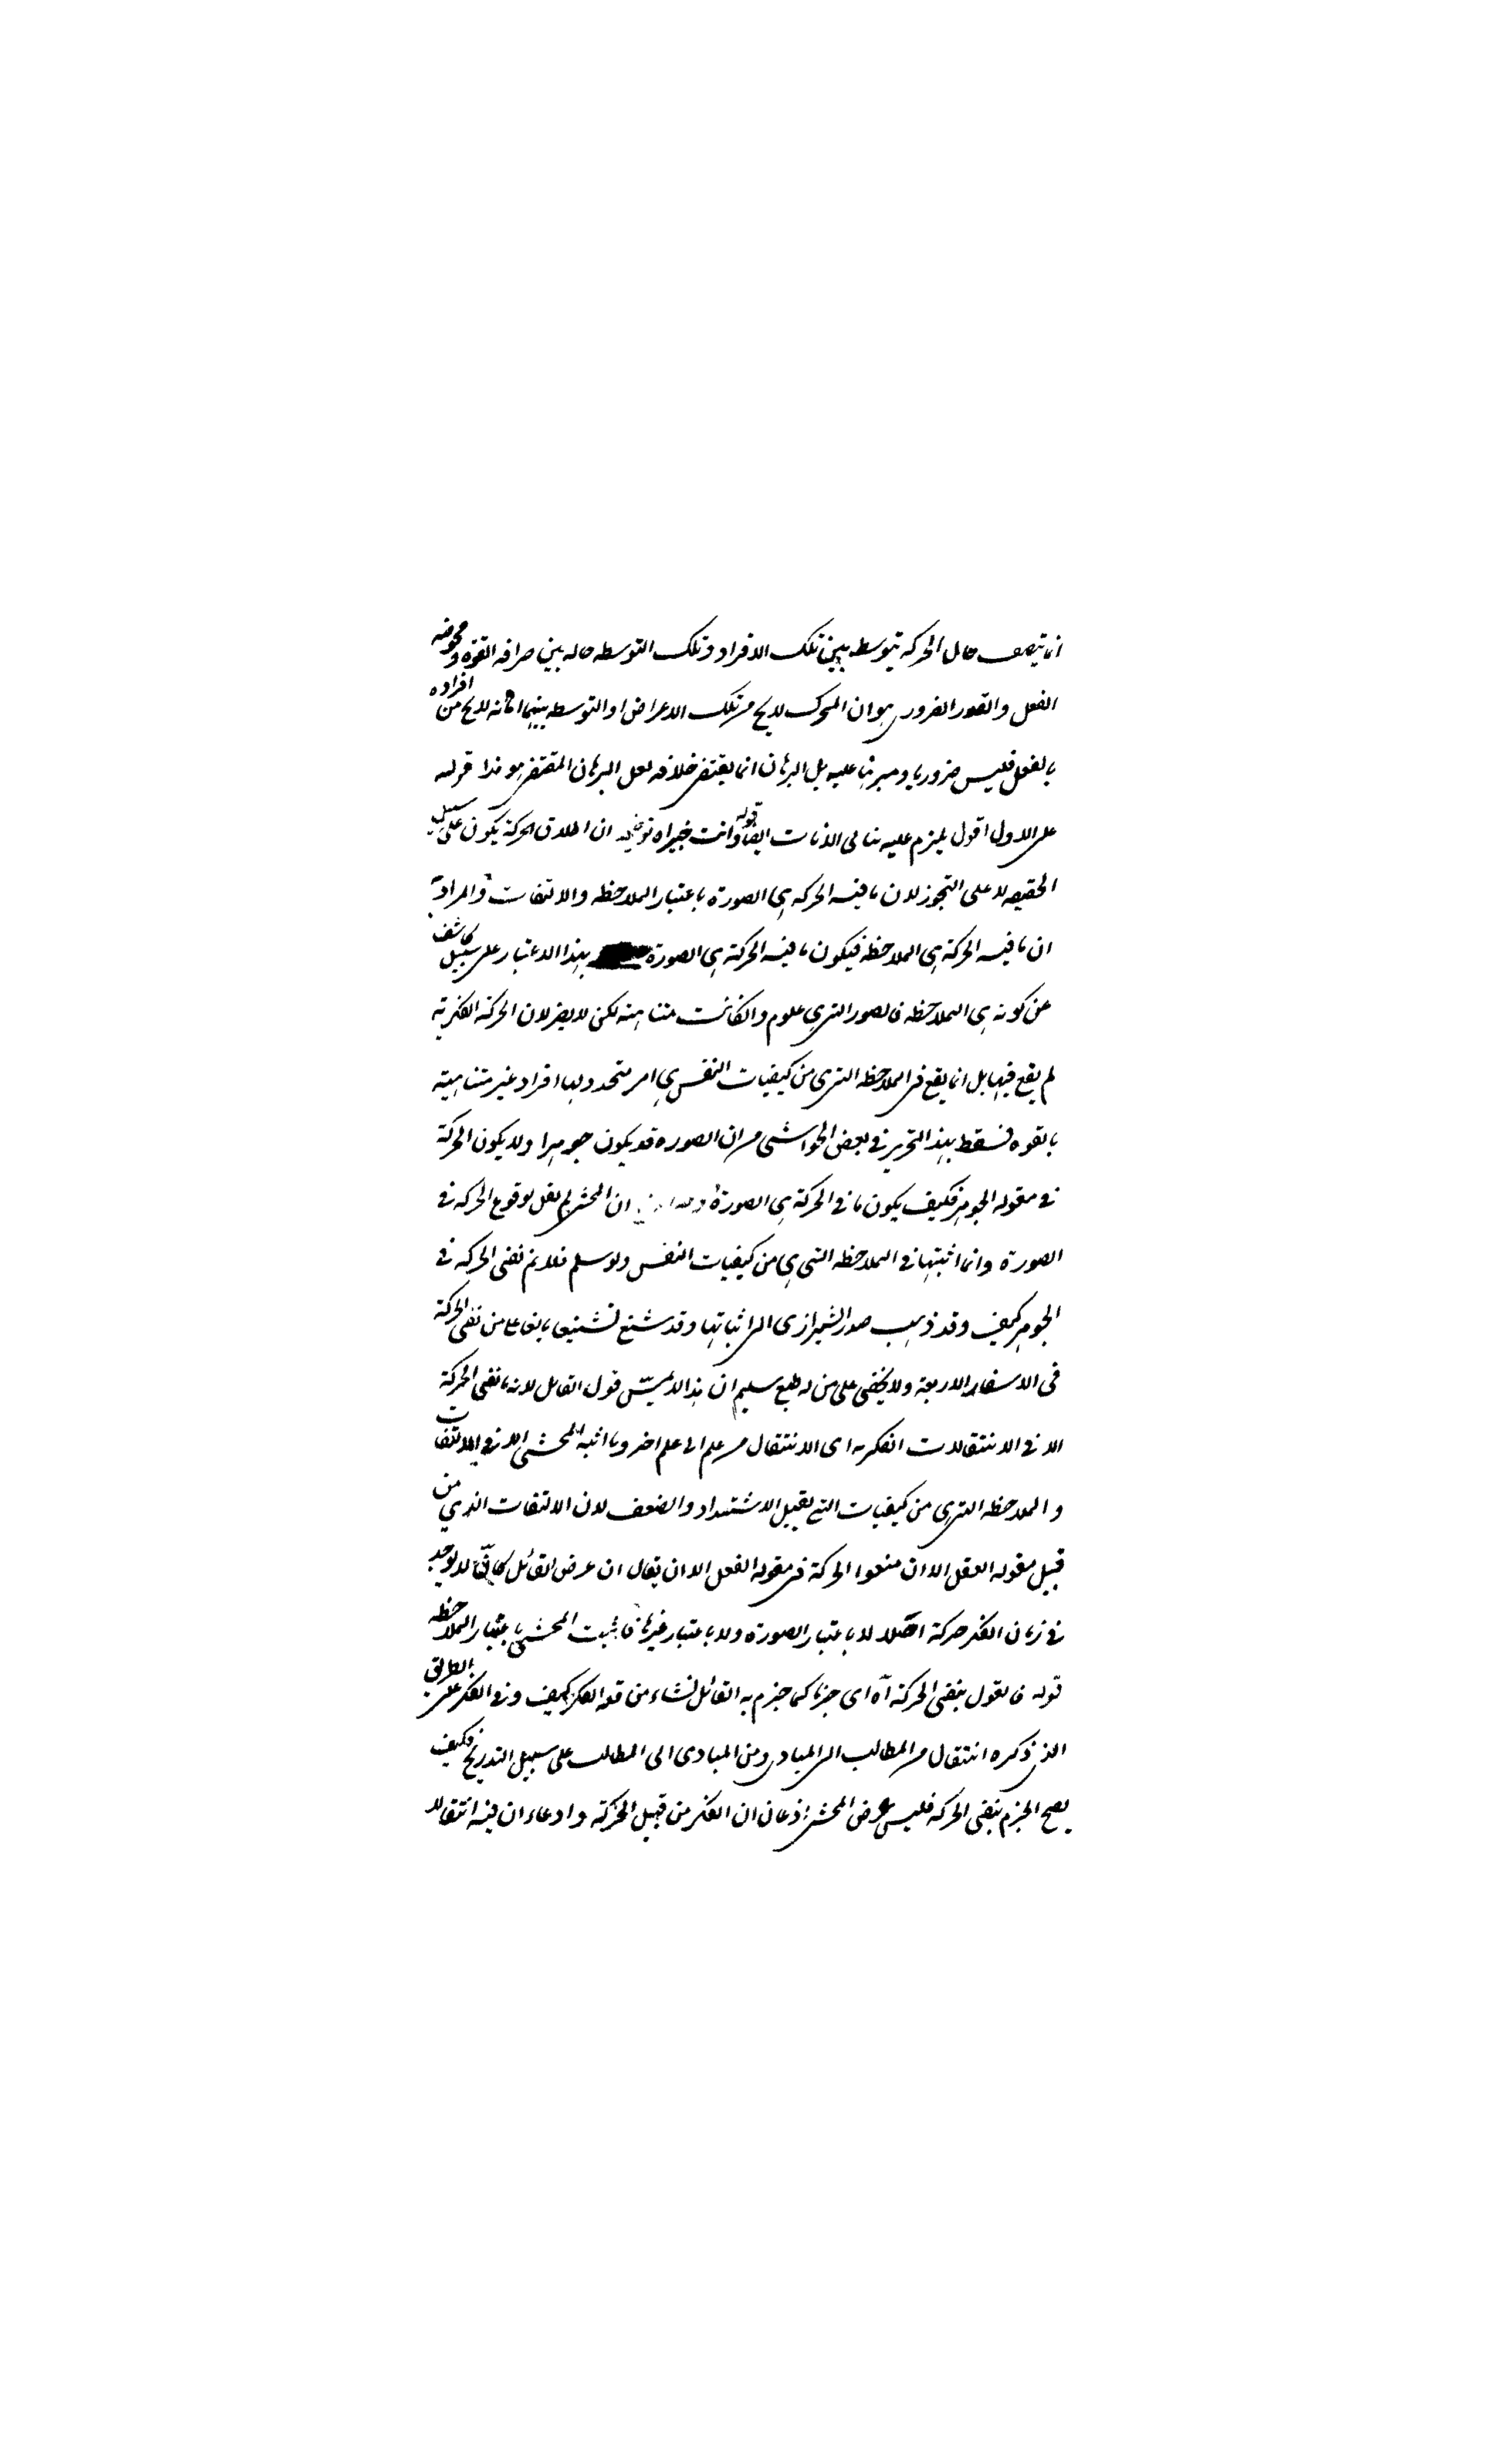 انما يتصف حال الحركه بتوسطه بين تلك الافراد وتلك التوسطه حاله بين صرافه القوه ومحوضه
الفعل والقدر الضرورى هو ان المتحرك لا يخ من تلك الاعراض او التوسطه بينهما اما انه لا يخ من افراده
بالفعل فليس ضروريا ومبرهنا عليه بل البرهان انما يقتضى خلافه لعل البرهان المقتضى هو هذا قوله
على الاول اقول يلزم عليه تتالى الانات ايضا قوله وانت خبير اه ان اطلاق الحركة يكون على سبيل
الحقيقه لا على التجوز لان ما فيه الحركه هى الصورة باعتبار الملاحظه والالتفات والمراد به
ان ما فيه الحركة هى الملاحظة فيكون ما فيه الحركة هى الصورة بهذا الاعتبار على سبيل كاشف
عن كونه هى الملاحظه فالصور التى هى علوم وانكانت متناهيه لكن لا يضر لان الحركة الفكرية
لم يقع فيها بل انما يقع فى الملاحظه التى هى من كيفيات النفس هى امر متجدد ولها افراد غير متناهية
بالقوه فسقط بهذا التحرير فى بعض الحواشى من ان الصوره قد يكون جوهرا ولا يكون الحركة
فى مقوله الجوهر فكيف يكون ما فى الحركة هى الصورة ان المحشى لم يقل بوقوع الحركه فى
الصورة وانما اثبتها فى الملاحظه التى هى من كيفيات النفس ولو سلم فلا نم نفى الحركه فى
الجوهر كيف وقد ذهب صدر الشيرازى الى اثباتها وقد شنع تشنيعا بالغا على من نفى الحركة
فى الاسفار الاربعة ولا يخفى على من له طبع سليم ان هذا لا يمس قول القائل لانه ما نفى الحركة
الا فى الانتقالات الفكريه اى الانتقال من علم الى علم اخر وما اثبه المحشى الا فى الالتفات
والملاحظه التى هى من كيفيات التى يقبل الاشتداد والضعف لان الالتفات الذى من
قبيل مقوله الفعل الا ان منعوا الحركة فى مقوله الفعل الا ان يقال ان غرض القائل كان انه لا يوجد
فى زمان الفكر حركة اصلا لا باعتبار الصوره ولا باعتبار غيرها فاثبت المحشى باعتبار الملاحظه
قوله فالقول بنفى الحركة آه اى جزما كما جزم به القائل نشاء من قله الفكر كيف وفى الفكر على الطريق
الذى ذكره انتقال من المطالب الى المبادى ومن المبادى الى المطالب على سبيل التدريج فكيف
يصح الجزم بنفى الحركه فليس غرض المحشى اذعان ان الفكر من قبيل الحركة وادعاء ان فيه انتقالا